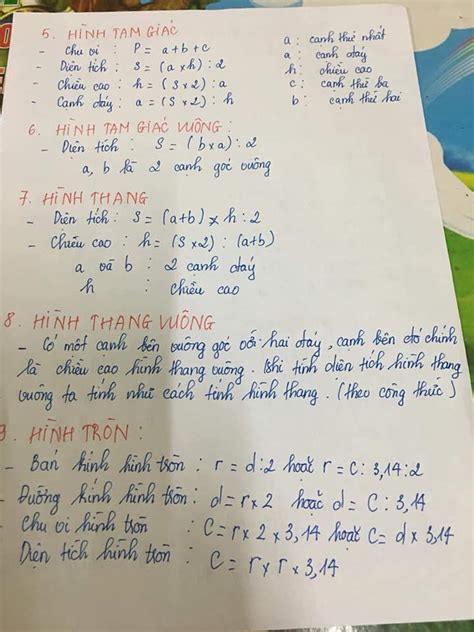 5. HÌNH TAM GIÁC
- Chu vi : P = a+b+c
- Diện tích : S = (a x h) : 2
- Chiều cao : h = (S x 2) : a
- Cạnh đáy : a = (S x 2) : h
a : cạnh thứ nhất
a : cạnh đáy
h : chiều cao
c : cạnh thứ ba
b : cạnh thứ hai
6. HÌNH TAM GIÁC VUÔNG :
- Diện tích : S = (b x a) : 2
a, b là 2 cạnh góc vuông
7. HÌNH THANG
- Diện tích : S = (a+b) x h : 2
- Chiều cao : h = (S x 2) : (a+b)
a và b : 2 cạnh đáy
h : chiều cao
8. HÌNH THANG VUÔNG
- Có một cạnh bên vuông góc với hai đáy, cạnh bên đó chính
là chiều cao hình thang vuông. Khi tính diện tích hình thang
vuông ta tính như cách tính hình thang. (theo công thức)
9. HÌNH TRÒN :
- Bán kính hình tròn : r = d : 2 hoặc r = C : 3,14 : 2
- Đường kính hình tròn : d = r x 2 hoặc d = C : 3,14
- Chu vi hình tròn : C = r x 2 x 3,14 hoặc C = d x 3,14
Diện tích hình tròn : C = r x r x 3,14